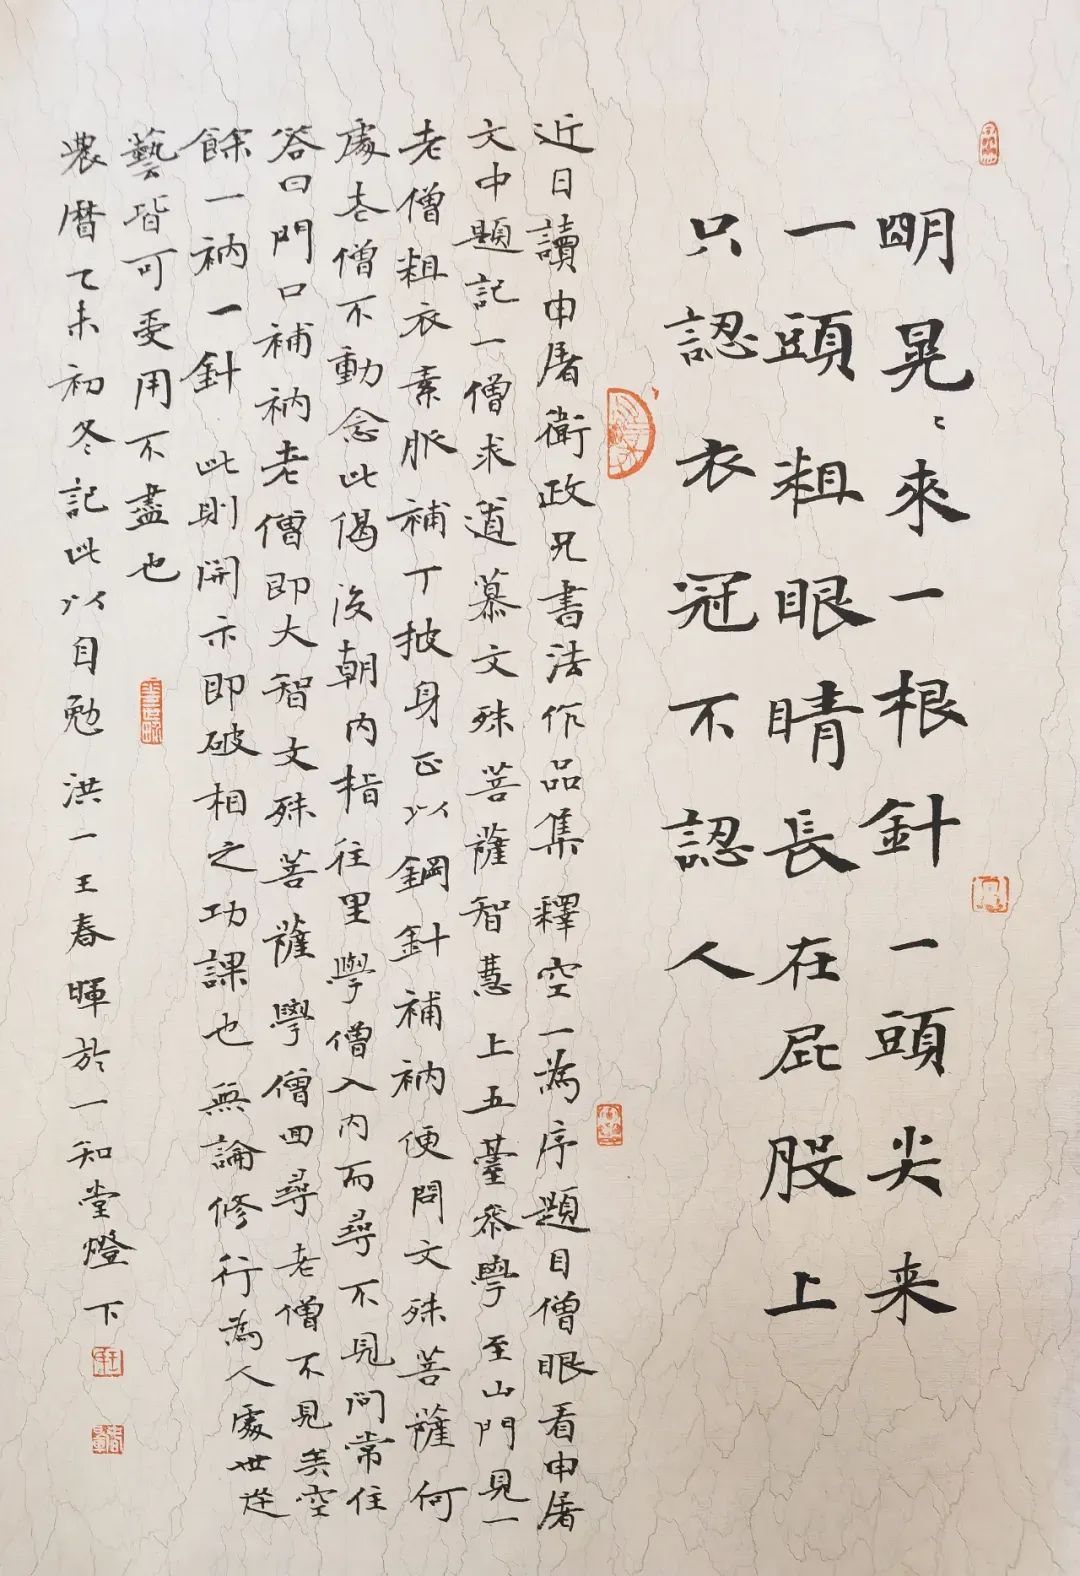 明晃〻來一根針一頭尖来
一頭粗眼睛長在屁股上
只認衣冠不認人
近日讀申屠衛政兄書法作品集釋空一為序題目僧眼看申屠
文中題記一僧求道慕文殊菩薩智慧上五臺參學至山門見一
老僧粗衣素服補丁披身正以鋼針補衲便問文殊菩薩何
處老僧不動念此偈後朝内指往里學僧入内而尋不見问常住
答曰門口補衲老僧即大智文殊菩薩學僧回尋老僧不見矣空
餘一衲一針此則開示即破相之功課也無論修行為人處世從
藝皆可受用不盡也
農曆乙未初冬記此以自勉洪一王春暉於一知堂燈下